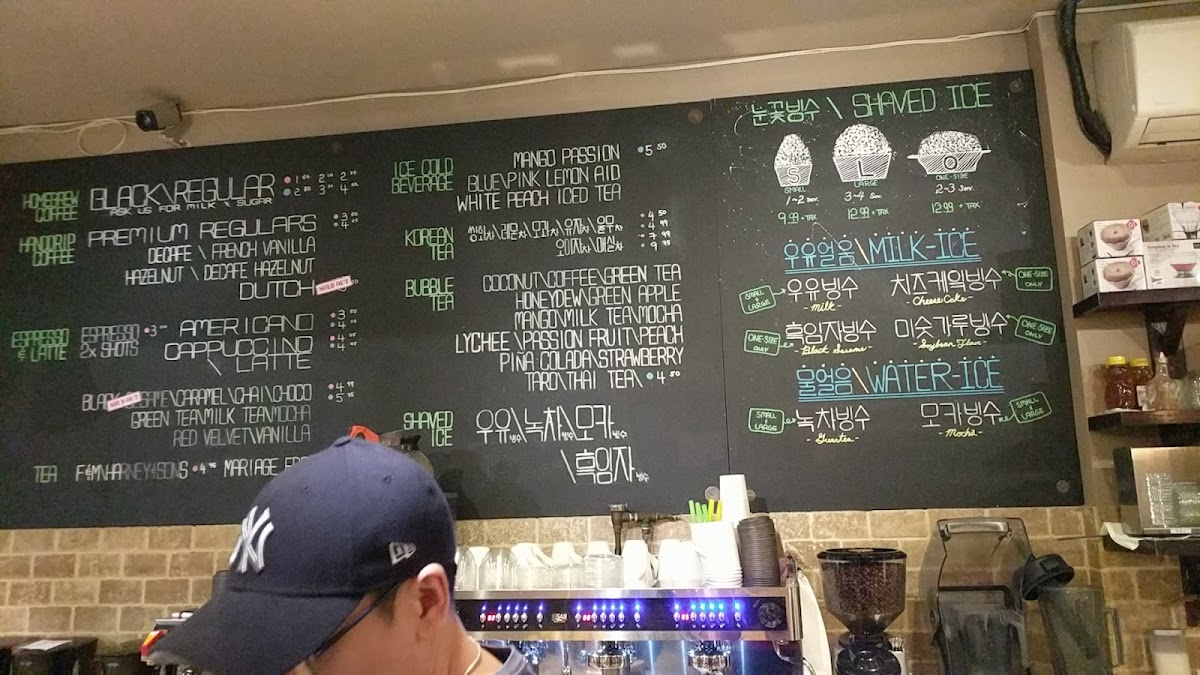 HOMEBREW
COFFEE
BLACK\REGULAR
ASK US FOR MILK & SUGAR
HANDDRIP
COFFEE
PREMIUM REGULARS
DECAFE / FRENCH VANILLA
HAZELNUT \ DECAFE HAZELNUT
DUTCH SOLD OUT
ESPRESSO
& LATTE
ESPRESSO
2X SHOTS
AMERICANO
CAPPUCCINO
\ LATTE
SOLD OUT
\CARAMEL\CHAI\CHOCO
GREEN TEA\MILK TEA\MOCHA
RED VELVET\VANILLA
TEA
HARNEY&SONS
MARIAGE
ICE COLD
BEVERAGE
MANGO PASSION 5 50
BLUE\PINK LEMON AID
WHITE PEACH ICED TEA
KOREAN
TEA
BUBBLE
TEA
COCONUT\COFFEE\GREEN TEA
HONEYDEW\GREEN APPLE
MANGO\MILK TEA\MOCHA
LYCHEE\PASSION FRUIT\PEACH
PIÑA COLADA\STRAWBERRY
TARO\THAI TEA\ 4 50
SHAVED
ICE
우유빙수\녹차빙수\모카빙수
\흑임자빙수
눈꽃빙수 \ SHAVED ICE
S
L
O
SMALL
LARGE
ONE-SIZE
1~2 Serv.
3~4 Serv.
2-3 Serv.
9.99 + TAX
12.99 + TAX
12.99 + TAX
우유얼음\MILK-ICE
SMALL & LARGE
우유빙수
- Milk -
치즈케잌빙수
- Cheese Cake -
ONE-SIZE ONLY
ONE-SIZE ONLY
흑임자빙수
- Black Sesame -
미숫가루빙수
- Soybean Flour -
ONE-SIZE ONLY
물얼음\WATER-ICE
SMALL & LARGE
녹차빙수
- Greentea -
모카빙수
- Mocha -
SMALL & LARGE
NY